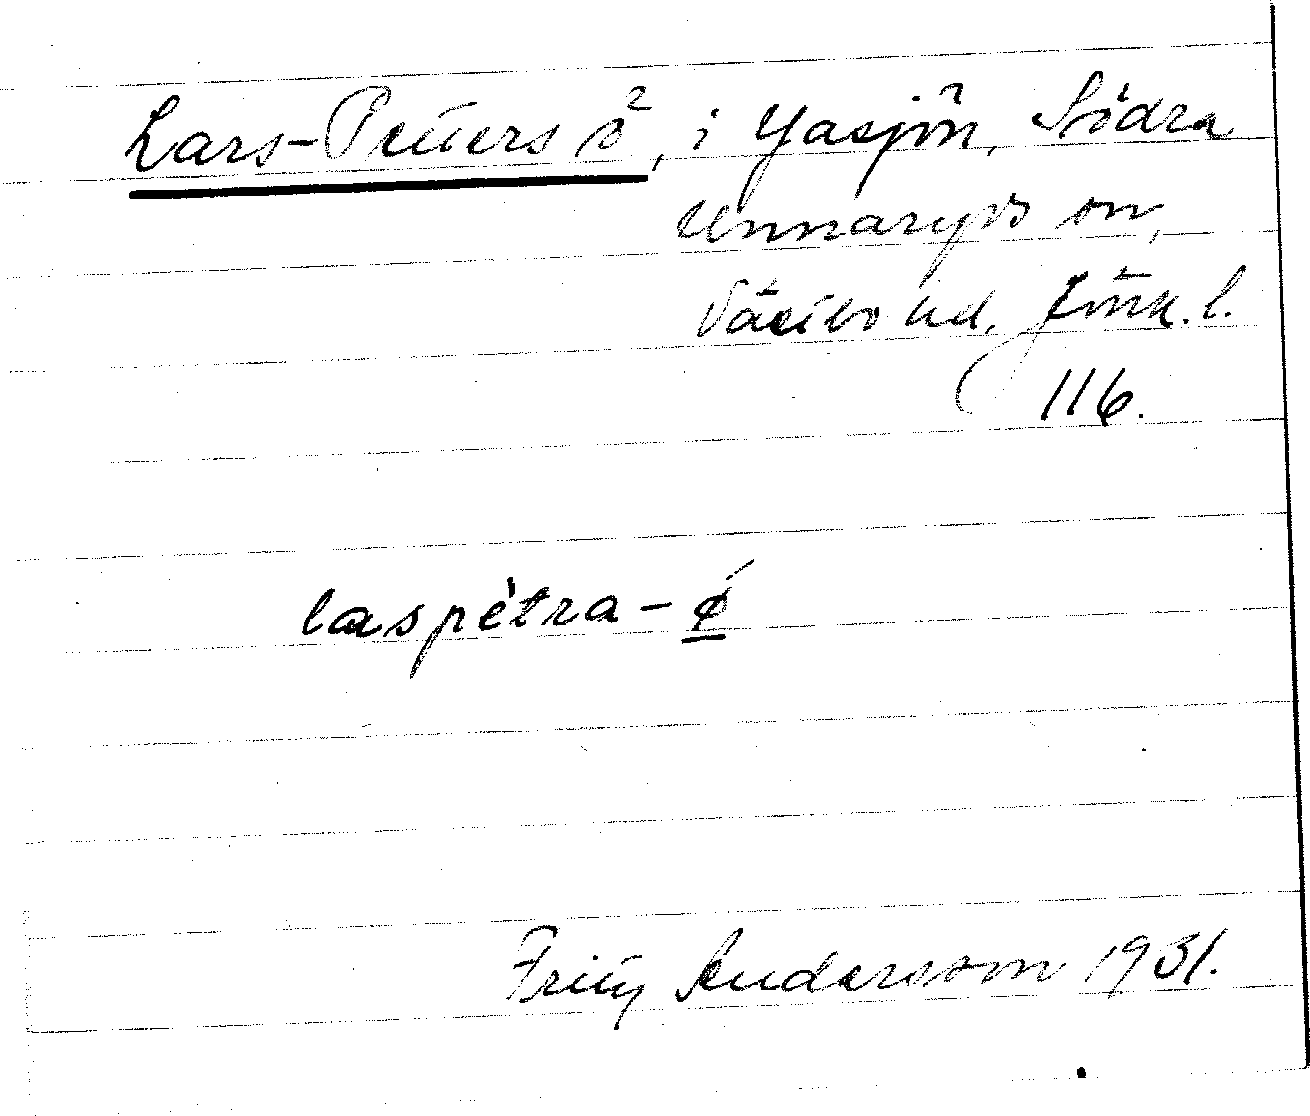 Lars-Petters ö, i Yasjön, Södra
Unnaryds sn,
Västbo hd. Jönk. l.
116.
laspètra-ǿ
Fritz Andersson 1931.